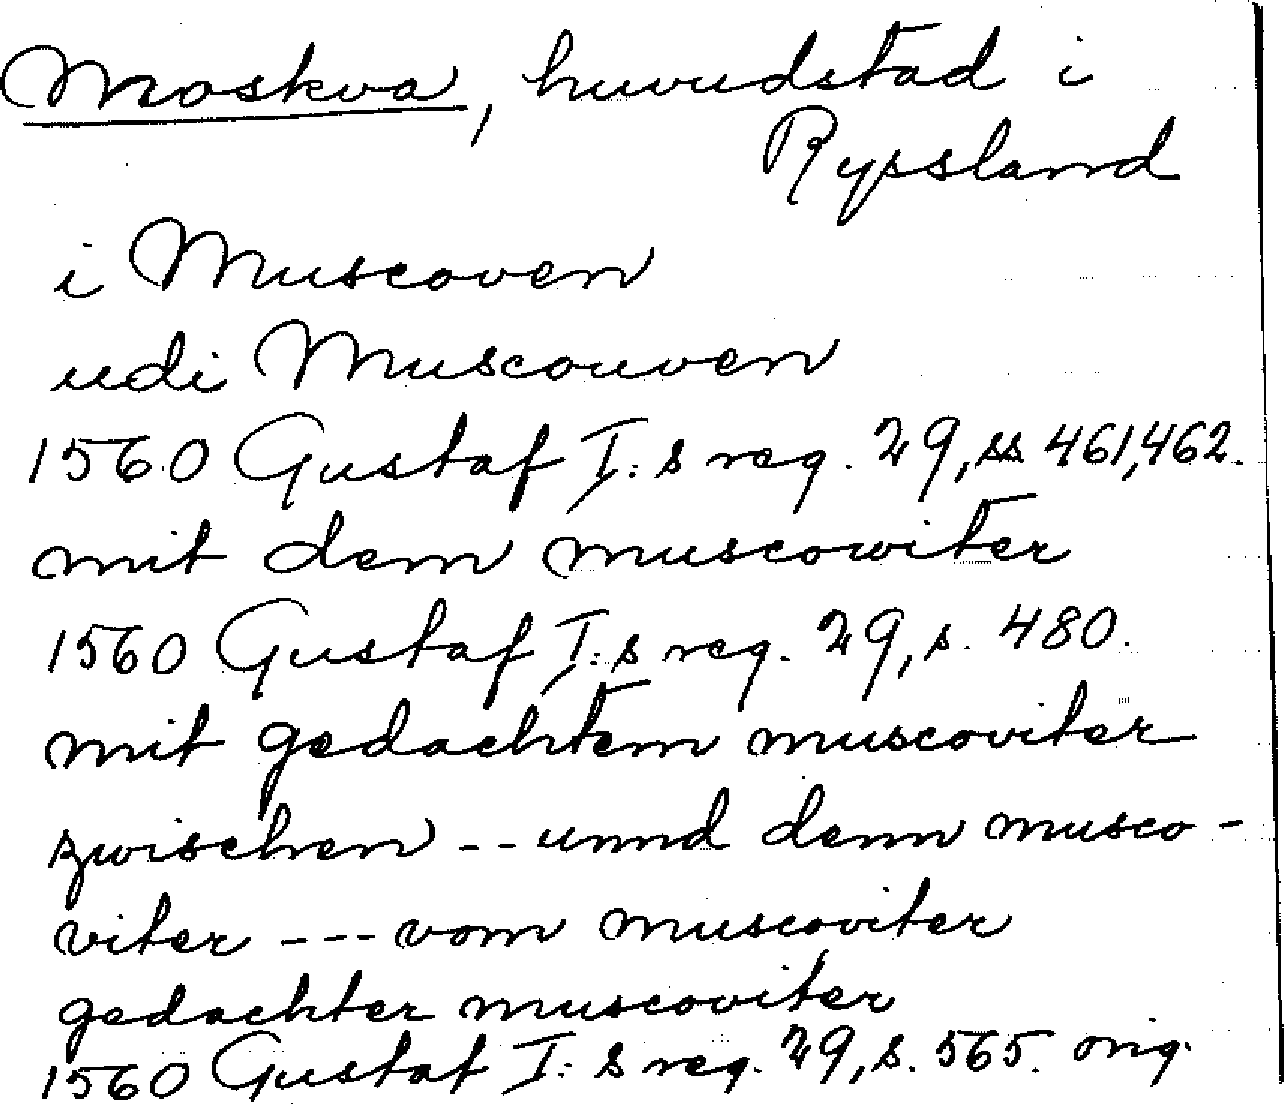 Moskva, huvudstad i
Ryssland
i Muscoven
udi Muscouven
1560 Gustaf I:s reg. 29, ss 461, 462.
mit dem muscowiter
1560 Gustaf I:s reg. 29, s. 480.
mit gedachtem muscoviter
zwischen -- unnd denn musco-
viter --- vom muscoviter
gedachter muscoviter
1560 Gustaf I:s reg. 29, s. 565. orig.